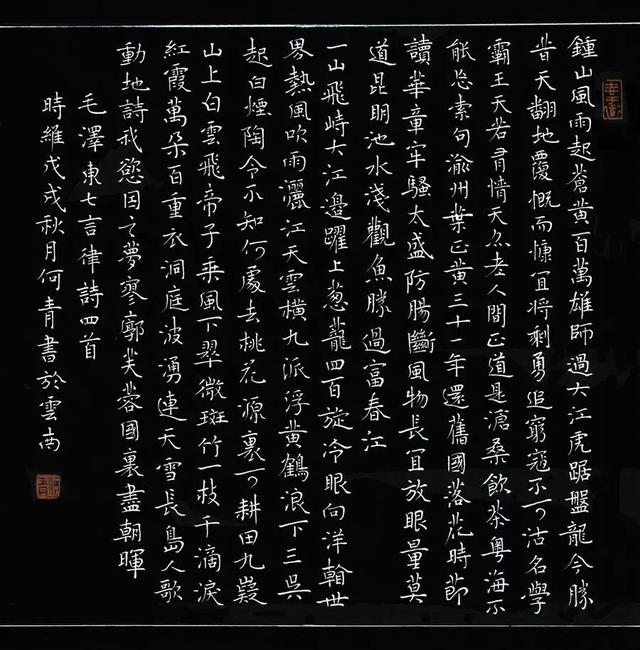 鍾山風雨起蒼黃百萬雄師過大江虎踞盤龍今勝
昔天翻地覆慨而慷宜將剩勇追窮寇不可沽名學
霸王天若有情天亦老人間正道是滄桑飲茶粵海不
能忘索句渝州葉正黃三十一年還舊國落花時節
讀華章牢騷太盛防腸斷風物長宜放眼量莫
道昆明池水淺觀魚勝過富春江
一山飛峙大江邊躍上蔥蘢四百旋冷眼向洋看世
界熱風吹雨灑江天雲橫九派浮黃鶴浪下三吳
起白煙陶令不知何處去桃花源裏可耕田九嶷
山上白雲飛帝子乘風下翠微斑竹一枝千滴淚
紅霞萬朵百重衣洞庭波湧連天雪長島人歌
動地詩我慾因之夢寥廓芙蓉國裏盡朝暉
毛澤東七言律詩四首
時維戊戌秋月何青書於雲南
何青